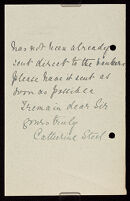 has not been already
sent direct to the bankers
please have it sent as
soon as possible
I remain dear Sir
yours truly
Catherine Steel